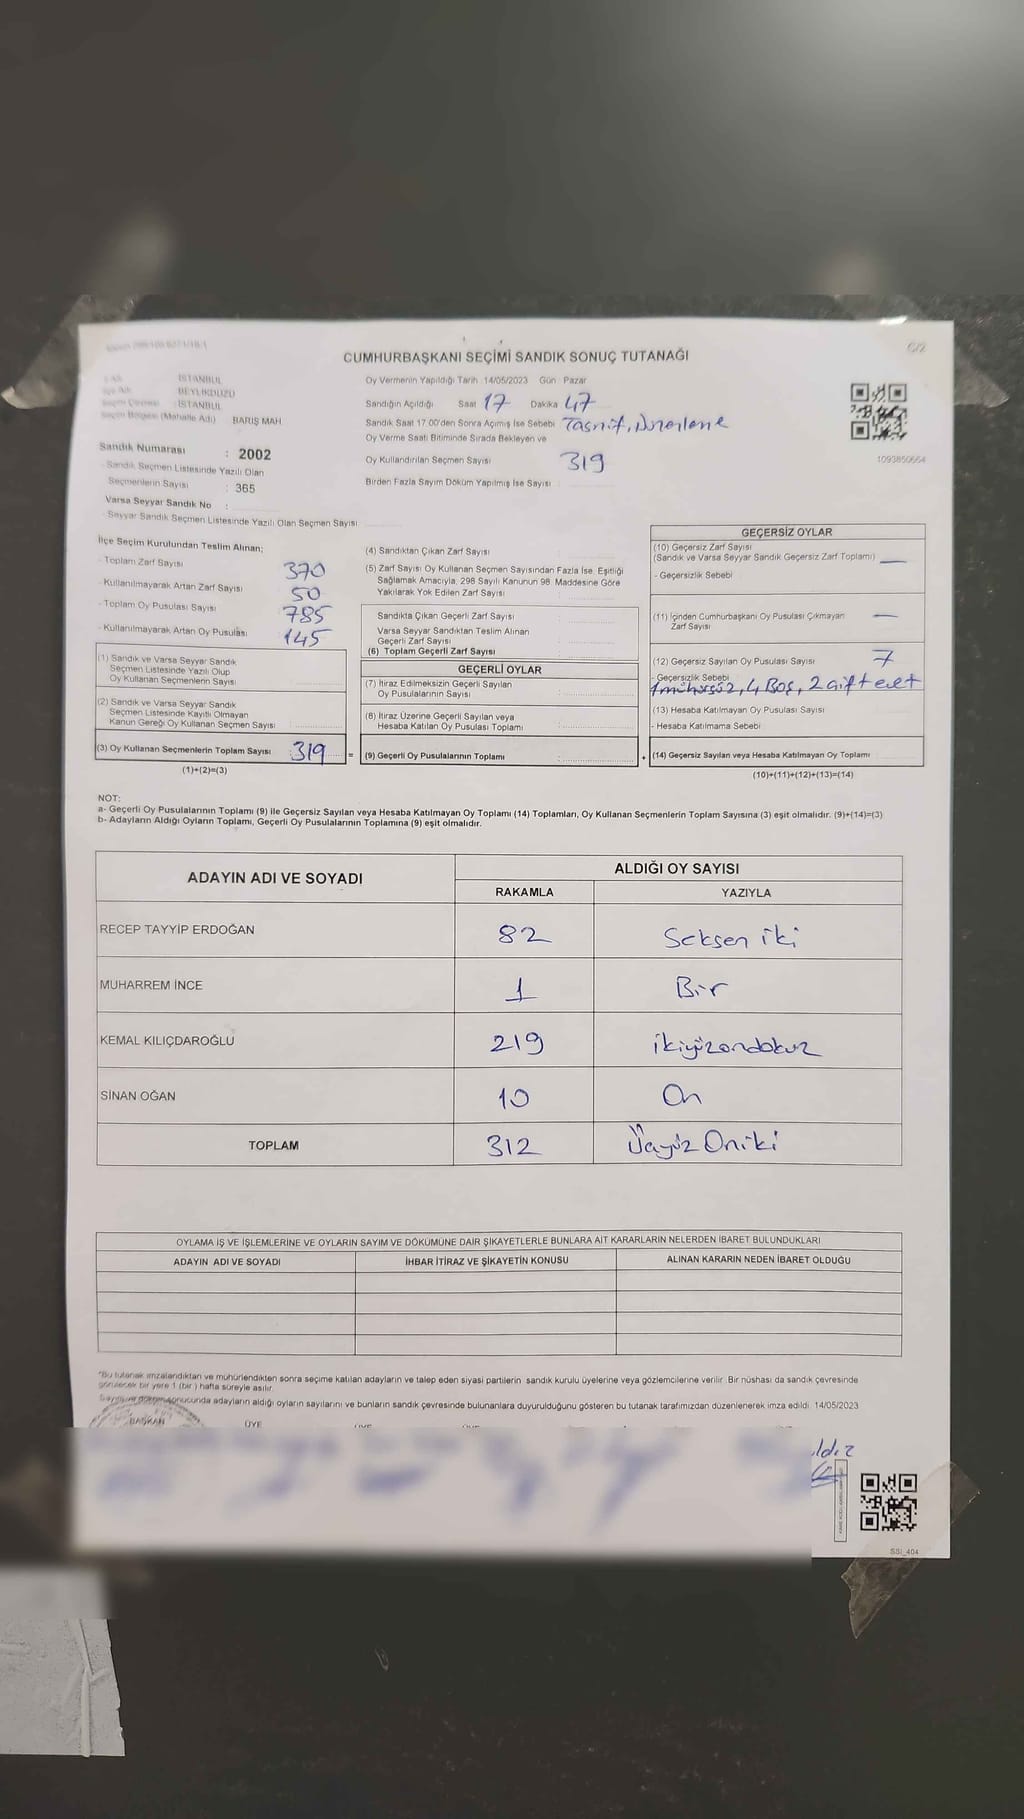 CUMHURBAŞKANI SEÇİMİ SANDIK SONUÇ TUTANAĞI
C/2
İSTANBUL
BEYLİKDÜZÜ
İSTANBUL
Seçim Bölgesi (Mahalle Adı) BARIŞ MAH
Sandık Numarası : 2002
- Sandık Seçmen Listesinde Yazılı Olan
Seçmenlerin Sayısı : 365
Varsa Seyyar Sandık No :
- Seyyar Sandık Seçmen Listesinde Yazılı Olan Seçmen Sayısı
Oy Vermenin Yapıldığı Tarih 14/05/2023 Gün Pazar
Sandığın Açıldığı Saat 17 Dakika 47
Sandık Saat 17.00'den Sonra Açılmış İse Sebebi Tasnif,
Oy Verme Saati Bitiminde Sırada Bekleyen ve
Oy Kullandırılan Seçmen Sayısı 319
Birden Fazla Sayım Döküm Yapılmış İse Sayısı
1093850664
İlçe Seçim Kurulundan Teslim Alınan;
- Toplam Zarf Sayısı 370
- Kullanılmayarak Artan Zarf Sayısı 50
- Toplam Oy Pusulası Sayısı 785
- Kullanılmayarak Artan Oy Pusulası 145
(1) Sandık ve Varsa Seyyar Sandık
Seçmen Listesinde Yazılı Olup
Oy Kullanan Seçmenlerin Sayısı
(2) Sandık ve Varsa Seyyar Sandık
Seçmen Listesinde Kayıtlı Olmayan
Kanun Gereği Oy Kullanan Seçmen Sayısı
(3) Oy Kullanan Seçmenlerin Toplam Sayısı : 319 =
(1)+(2)=(3)
(4) Sandıktan Çıkan Zarf Sayısı
(5) Zarf Sayısı Oy Kullanan Seçmen Sayısından Fazla İse, Eşitliği
Sağlamak Amacıyla, 298 Sayılı Kanunun 98. Maddesine Göre
Yakılarak Yok Edilen Zarf Sayısı
Sandıkta Çıkan Geçerli Zarf Sayısı
Varsa Seyyar Sandıktan Teslim Alınan
Geçerli Zarf Sayısı
(6) Toplam Geçerli Zarf Sayısı
GEÇERLİ OYLAR
(7) İtiraz Edilmeksizin Geçerli Sayılan
Oy Pusulalarının Sayısı
(8) İtiraz Üzerine Geçerli Sayılan veya
Hesaba Katılan Oy Pusulaları Toplamı
(9) Geçerli Oy Pusulalarının Toplamı +
GEÇERSİZ OYLAR
(10) Geçersiz Zarf Sayısı
(Sandık ve Varsa Seyyar Sandık Geçersiz Zarf Toplamı) —
- Geçersizlik Sebebi
(11) İçinden Cumhurbaşkanı Oy Pusulası Çıkmayan —
Zarf Sayısı
(12) Geçersiz Sayılan Oy Pusulası Sayısı 7
- Geçersizlik Sebebi
1 mühürsüz, 4 Boş, 2 çift evet
(13) Hesaba Katılmayan Oy Pusulası Sayısı
- Hesaba Katılmama Sebebi
(14) Geçersiz Sayılan veya Hesaba Katılmayan Oy Toplamı
(10)+(11)+(12)+(13)=(14)
NOT:
a- Geçerli Oy Pusulalarının Toplamı (9) ile Geçersiz Sayılan veya Hesaba Katılmayan Oy Toplamı (14) Toplamları, Oy Kullanan Seçmenlerin Toplam Sayısına (3) eşit olmalıdır. (9)+(14)=(3)
b- Adayların Aldığı Oyların Toplamı, Geçerli Oy Pusulalarının Toplamına (9) eşit olmalıdır.
ADAYIN ADI VE SOYADI ALDIĞI OY SAYISI
RAKAMLA YAZIYLA
RECEP TAYYİP ERDOĞAN 82 Seksen iki
MUHARREM İNCE 1 Bir
KEMAL KILIÇDAROĞLU 219 ikiyüzondokuz
SİNAN OĞAN 10 On
TOPLAM 312 Üçyüz Oniki
OYLAMA İŞ VE İŞLEMLERİNE VE OYLARIN SAYIM VE DÖKÜMÜNE DAİR ŞİKAYETLERLE BUNLARA AİT KARARLARIN NELERDEN İBARET BULUNDUKLARI
ADAYIN ADI VE SOYADI İHBAR İTİRAZ VE ŞİKAYETİN KONUSU ALINAN KARARIN NEDEN İBARET OLDUĞU
*Bu tutanak imzalandıktan ve mühürlendikten sonra seçime katılan adayların ve talep eden siyasi partilerin sandık kurulu üyelerine veya gözlemcilerine verilir. Bir nüshası da sandık çevresinde
görülecek bir yere 1 (bir ) hafta süreyle asılır.
Sayım ve döküm sonucunda adayların aldığı oyların sayılarını ve bunların sandık çevresinde bulunanlara duyurulduğunu gösteren bu tutanak tarafımızdan düzenlenerek imza edildi. 14/05/2023
BAŞKAN ÜYE
SSI_404